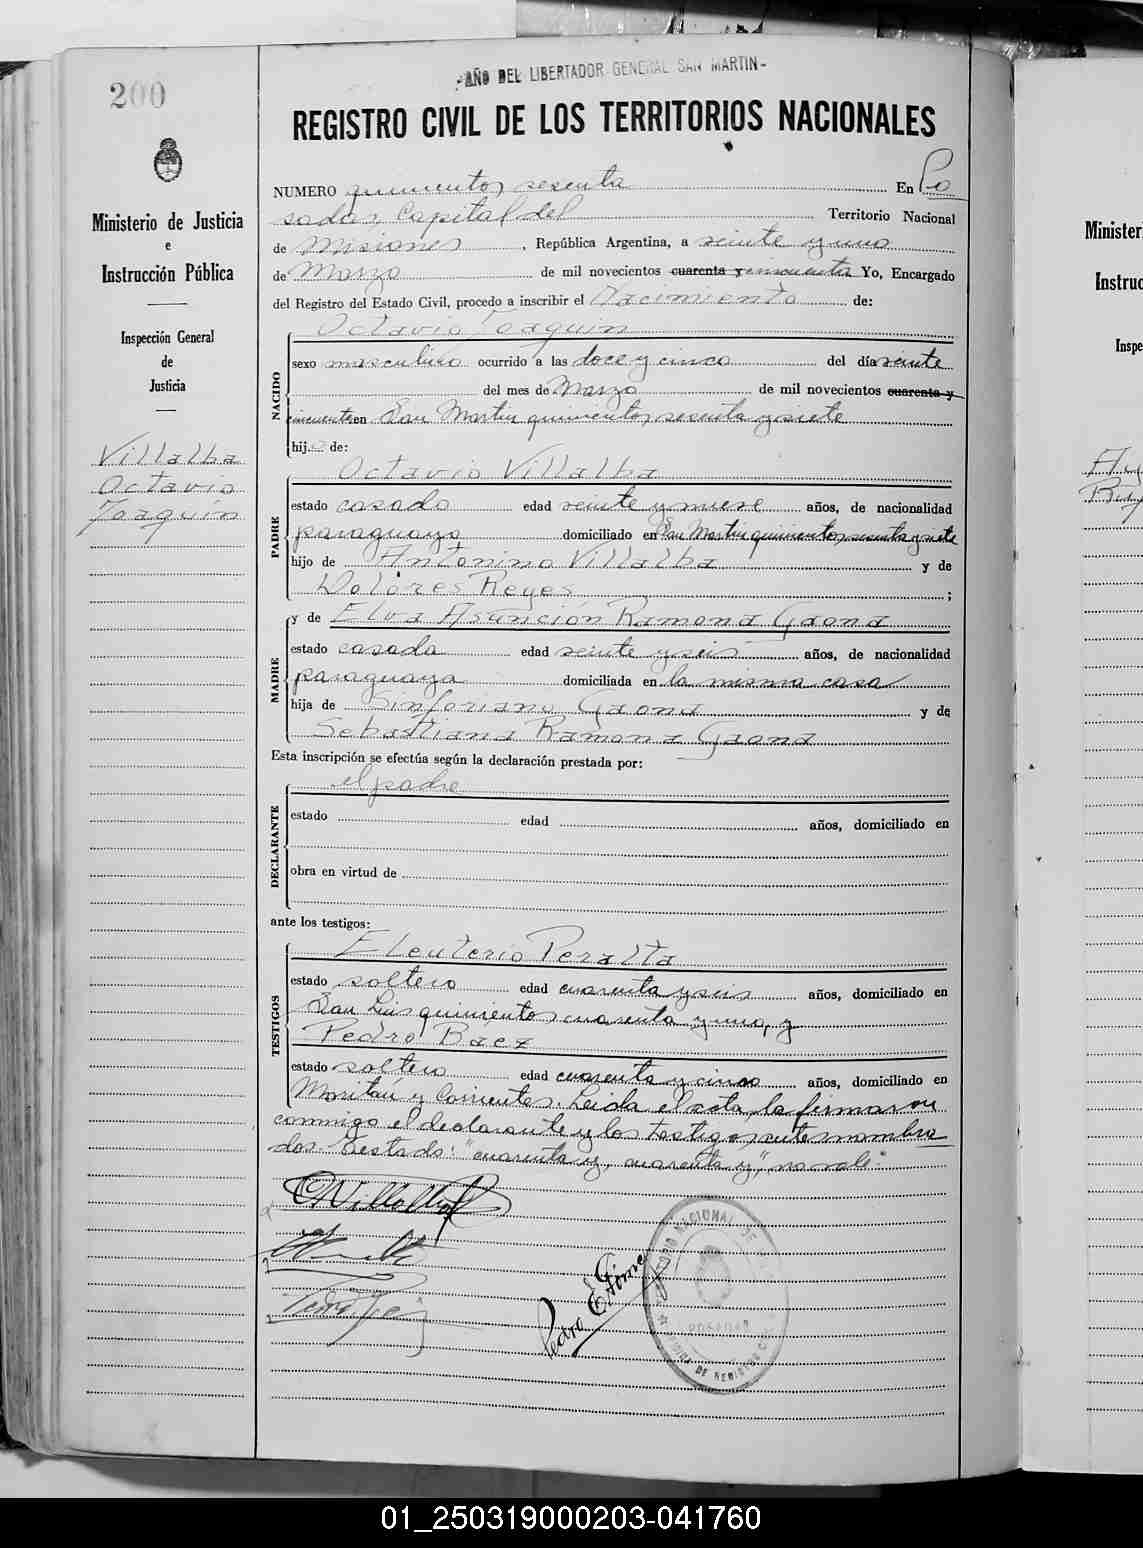 200
-AÑO DEL LIBERTADOR GENERAL SAN MARTIN-
REGISTRO CIVIL DE LOS TERRITORIOS NACIONALES
Ministerio de Justicia
e
Instrucción Pública
Inspección General
de
Justicia
Villalba
Octavio
Joaquín
NUMERO quinientos sesenta En Po
sadas, Capital del Territorio Nacional
de Misiones, República Argentina, a veinte y uno
de Marzo de mil novecientos cuarenta y cincuenta Yo, Encargado
del Registro del Estado Civil, procedo a inscribir el Nacimiento de:
NACIDO
Octavio Joaquin
sexo masculino ocurrido a las doce y cinco del día veinte
del mes de Marzo de mil novecientos cuarenta y
cincuenta en San Martin quinientos sesenta y siete
hij de:
PADRE
Octavio Villalba
estado casado edad veinte y nueve años, de nacionalidad
paraguayo domiciliado en San Martin quinientos sesenta y siete
hijo de Antonino Villalba y de
Dolores Reyes ;
MADRE
y de Elva Asunción Ramona Gaona
estado casada edad veinte y seis años, de nacionalidad
paraguaya domiciliada en la misma casa
hija de Sinforiano Gaona y de
Sebastiana Ramona Gaona
Esta inscripción se efectúa según la declaración prestada por:
DECLARANTE
el padre
estado edad años, domiciliado en
obra en virtud de
ante los testigos:
TESTIGOS
Eleuterio Peralta
estado soltero edad cuarenta y seis años, domiciliado en
San Luis quinientos cuarenta y uno, y
Pedro Baez
estado soltero edad cuarenta y cinco años, domiciliado en
Moritán y Corrientes. Leida el acta, la firmaron
conmigo el declarante y los testigos antes nombra
dos. Testado: "cuarenta y, cuarenta y," no vale.
OVillalba
Pedro E Gómez
POSADAS
Minister
Instruc
Inspe
01_250319000203-041760